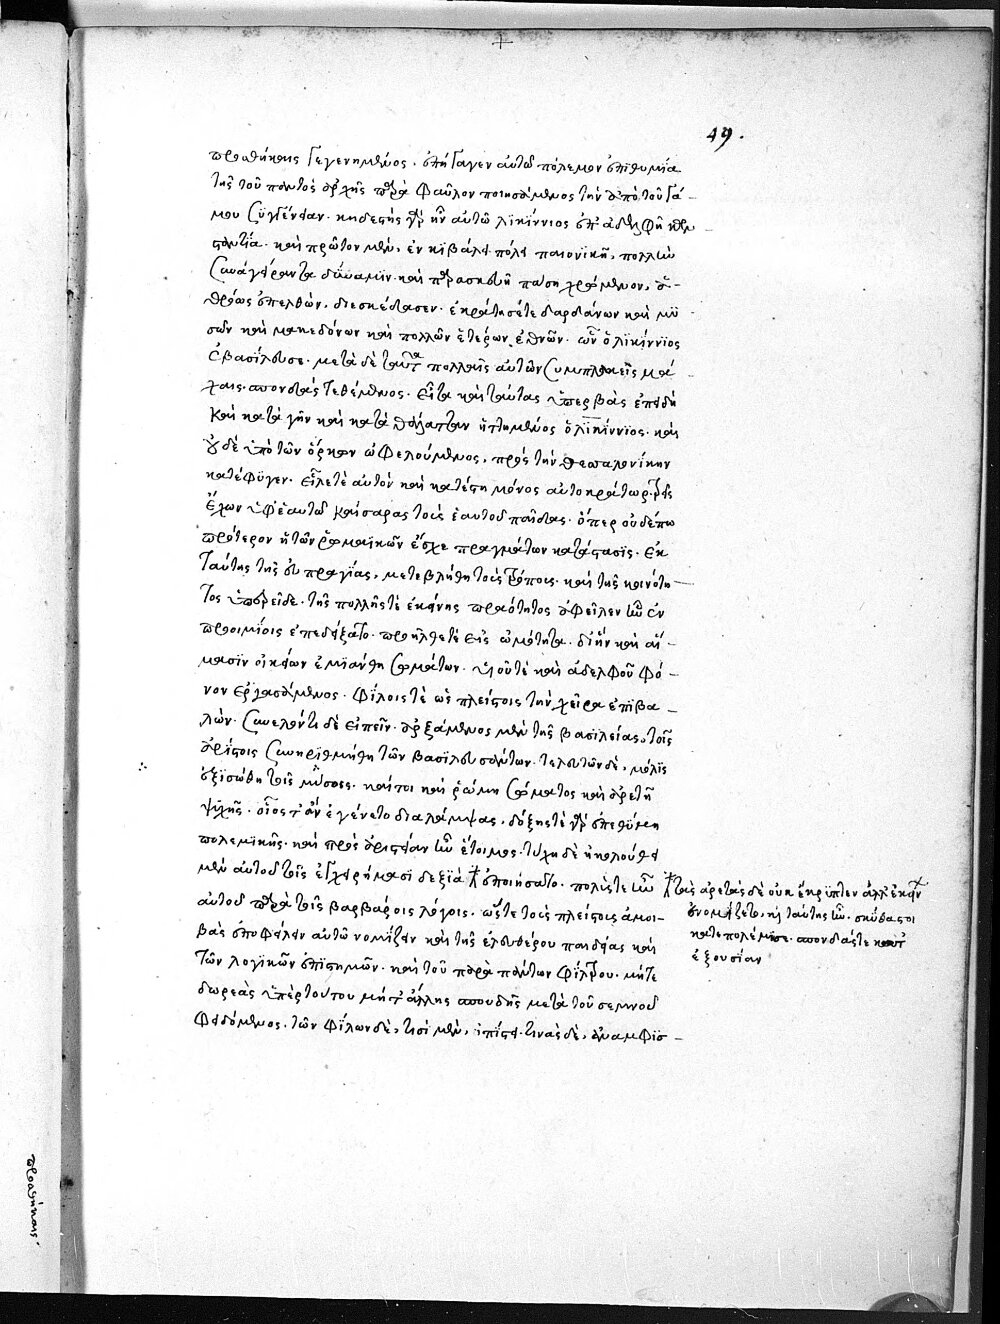 49.
προθήκης γεγενημένος. ἐπήγαγεν αὐτῶ πόλεμον ἐπιθυμία
τῆς τοῦ παντὸς ἀρχῆς παρὰ φαῦλον ποιησάμενος τὴν ἀπὸ τοῦ γά
μου συγγένειαν. κηδεστὴς γὰρ ἦν αὐτῶ λικίννιος ἐπ' ἀδελφῆ κων
σταντία. καὶ πρῶτον μὲν, ἐν κιβάλει πόλει παιονικῆ, πολλὴν
συναγείραντα δύναμιν. καὶ παρασκευῆ πάση χρώμενον, ἀ-
θρόως ἐπελθὼν, διεσκέδασεν. ἐκράτησέτε δαρδάνων καὶ μυ
σῶν καὶ μακεδόνων καὶ πολλῶν ἑτέρων ἐθνῶν. ὧν ὁ λικίννιος
ἐβασίλευσε. μετὰ δὲ ταῦτα πολλαῖς αὐτῶν συμπλακεὶς μά
χαις. σπονδὰς τεθέμενος. εἶτα καὶ ταύτας ὑπερβὰς ἐπειδὴ
καὶ κατὰ γῆν καὶ κατὰ θάλατταν ἡττημένος ὁ λικίννιος. καὶ
οὐδὲ ὑπὸ τῶν ὅρκων ὠφελούμενος, πρὸς τὴν θεσσαλονίκην
κατέφυγεν. εἷλέτε αὐτὸν καὶ κατέστη μόνος αὐτοκράτωρ. τρεῖς
ἔχων ὑφ' ἑαυτῶ καίσαρας τοὺς ἑαυτοῦ παῖδας. ὅπερ οὐδέπω
πρότερον ἡ τῶν ῥωμαϊκῶν ἔσχε πραγμάτων κατάστασις. ἐκ
ταύτης τῆς εὐπραγίας, μετεβλήθη τοὺς τρόπους. καὶ τῆς καινότη
τος ὑπερεῖδε. τῆς πολλῆς τὲ ἐκείνης πραότητος ἀφεῖλεν ἣν ἐν
προοιμίοις ἐπεδείξατο. προῆλθετὲ εἰς ὠμότητα. δι' ἣν καὶ αἵ-
μασιν οἰκείων ἐμιάνθη σωμάτων. υἱοῦ τὲ καὶ ἀδελφοῦ φό-
νον ἐργασάμενος. φίλοις τὲ ὡς πλείστοις τὴν χεῖρα ἐπιβα-
λών. συνελόντι δὲ εἰπεῖν. ἀρξάμενος μὲν τῆς βασιλείας, τοῖς
ἀρίστοις συνηριθμήθη τῶν βασιλευσάντων. τελευτῶν δὲ, μόλις
ἐξισώθη τοῖς μέσοις. καίτοι καὶ ῥώμη σώματος καὶ ἀρετῆ
ψυχῆς. οἷος τ' ἂν ἐγένετο διαλάμψας. δόξης τὲ γὰρ ἐπεθύμει
πολεμικῆς. καὶ πρὸς ἀριστείαν ἦν ἕτοιμος. τύχη δὲ ἠκολούθει
μὲν αὐτοῦ τοῖς ἐγχειρήμασι δεξιὰ ἐποιήσατο. πολύς τε ἦν
αὐτοῦ παρὰ τοῖς βαρβάροις λόγοις. ὥστε τοὺς πλείστους ἀμοι-
βὰς ἐποφείλειν αὐτῶ νομίζειν καὶ τῆς ἐλευθέρου παιδείας καὶ
τῶν λογικῶν ἐπιστημῶν. καὶ τοῦ παρὰ πάντων φίλτρου. μήτε
δωρεὰς ὑπὲρ τούτου μήτ' ἄλλης σπουδῆς μετὰ τοῦ σεμνοῦ
φειδόμενος. τῶν φίλων δὲ, τισὶ μὲν, ἠπίστει. τινὰς δὲ, ἀναμφισ-
τὰς ἀρετὰς δὲ οὐκ ἔκρυπτεν ἀλλ' ἐκείν
νομίζετο, ταύτης ἦν. σκύθας τοι
κατεπολέμησε. σπονδάςτε κατ'
ἐξουσίαν
προθήκης